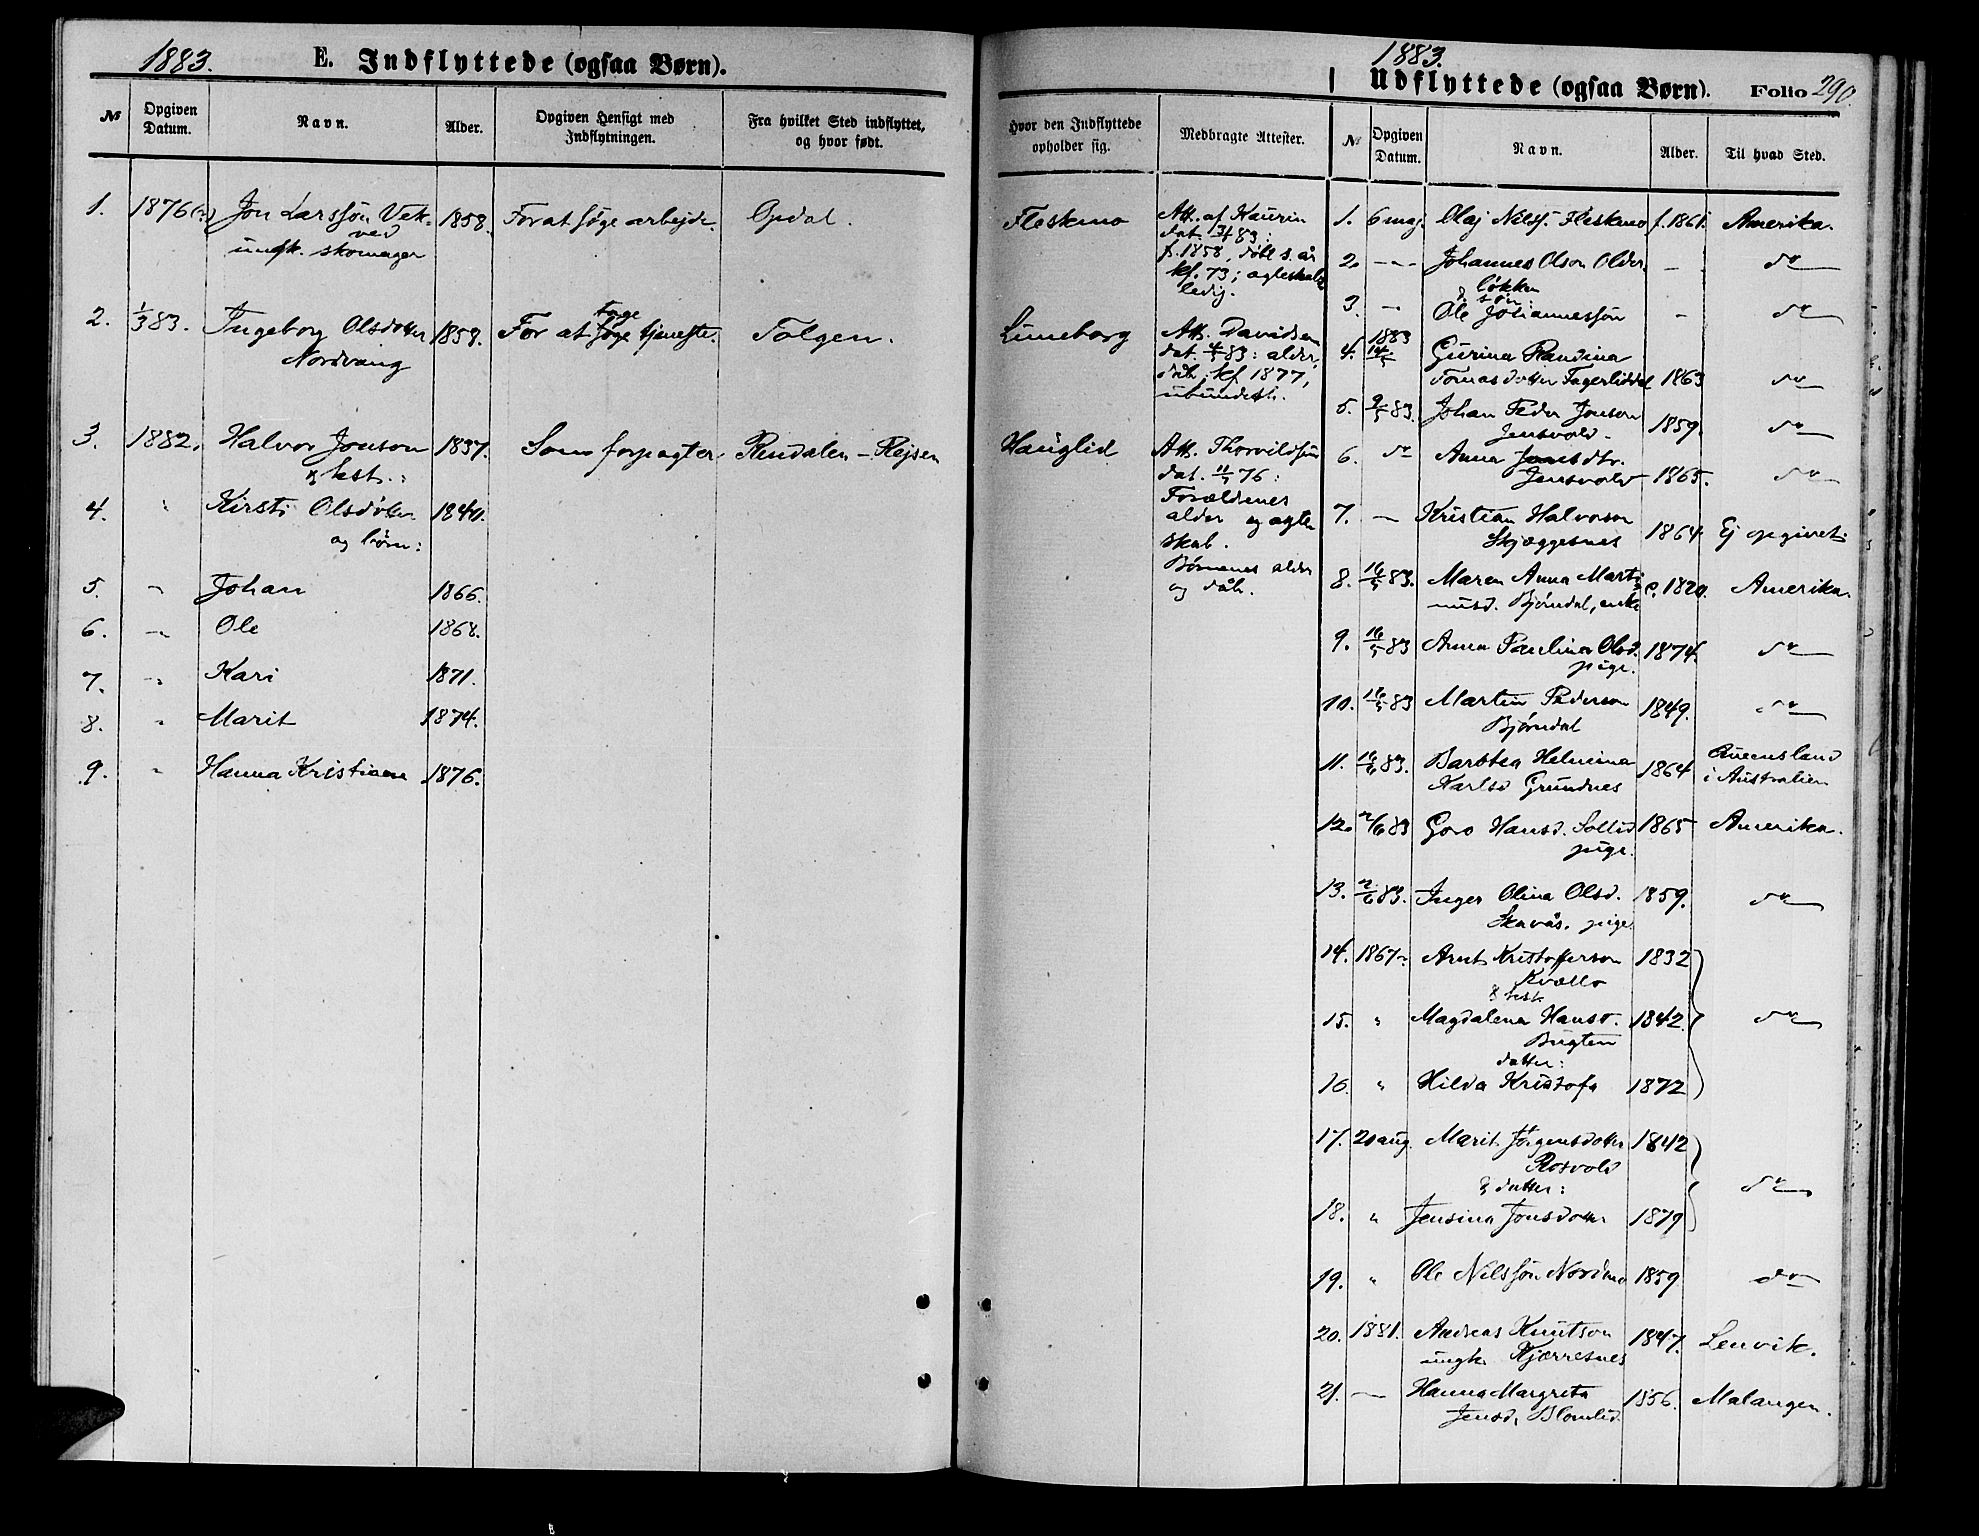 1883.
E. Indflyttede (ogsaa Børn).
№
Opgiven Datum.
Navn.
Alder.
Opgiven Hensigt med Indflytningen.
Fra hvilket Sted indflyttet, og hvor født.
1. 1876(?) Jon Larssøn Vek- 1858. For at søge arbejde. Opdal.
ved
ungk. skomager
2. 1/3 83. Ingeborg Olsdotter 1858. For at søge tjeneste. Tolgen.
Nordvang
3. 1882. Halvor Jonson 1837. Som forpagter Rendalen - Rejsen
& kst.:
4. " Kirsti Olsdotter 1840.
og børn:
5. " Johan 1866.
6. " Ole 1868.
7. " Kari 1871.
8. " Marit 1874.
9. " Hanna Kristiane 1876.
Hvor den Indflyttede opholder sig.
Medbragte Attester.
Fleskmo Att. af Kaurin
dat. 83:
f. 1858, døbt s. år
kf. 73; ægteskab
ledig.
Luneborg Att. Davidsen
dat. 83: alder,
dåb, kf 1877,
ubundeth.
Hauglid Att. Thorvildsen
dat. 76:
Forældrenes
alder og ægte
skab.
Børnenes alder
og dåb.
1883.
Udflyttede (ogsaa Børn). Folio 290.
№
Opgiven Datum.
Navn.
Alder.
Til hvad Sted.
1. 6 maj. Olaj Nilss. Fleskmo f. 1861. Amerika.
2. - - - Johannes Olson Older- - do
løkken
3. - & søn:
Ole Johannessøn - do
1883
4. 14/5 Gurina Randina
Tomasdotter Fagerliddal 1863 do
5. 9/5 83. Johan Peder Jonson
Jensvold. 1859. do
6. do Anna Jonsdtr.
Jensvold 1865. do
7. - Kristian Halvorson
Skjæggesnes 1864 Ej opgivet
8. 16/5 83. Maren Anna Marti-
nusd. Bjørndal, enke c. 1820. Amerika.
9. 16/5 83 Anna Paulina Olsd. 1874. do
pige.
10. 16/5 83 Martin Pederson 1849. do
Bjørndal
11. 16/6 83. Barbtea Helmina 1864 Queensland
Karlsd Grundnes i Australien
12. 2/6 83 Goro Hansd. Sollid 1865 Amerika.
pige.
13. 2/6 83. Inger Olina Olsd. 1859. do
Skavås. pige.
14. 1867? Arnt Kristofferson 1832
Kvællo
& kst
15. " Magdalena Hansd. 1842 do
Bugten
datter:
16. " Hilda Kristofa 1872
17. 20 aug. Marit Jörgensdotter 1842
Rosvold
& datter: do
18. " Jensina Jonsdotter 1879
19. " Ole Nilssøn Nordmo 1859 do
20. 1881. Andreas Knutson 1847. Lenvik.
ungk. Kjærresnes
21. - Hanna Margreta 1856. Malangen.
Jensd. Blomlid